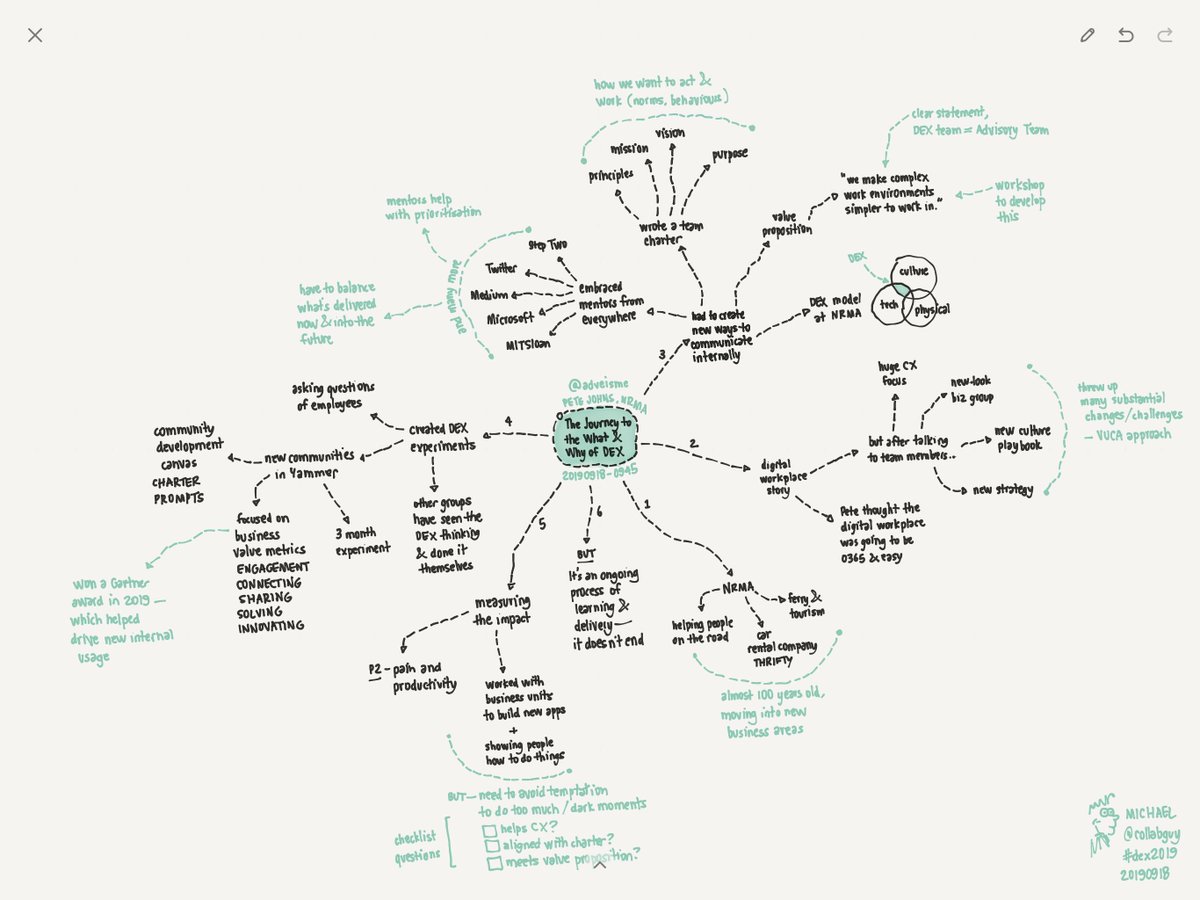 @adveisme
PETE JOHNS, NRMA
The Journey to
the What &
Why of DEX
20190918-0945
1
NRMA
helping people
on the road
car
rental company
THRIFTY
ferry &
tourism
almost 100 years old,
moving into new
business areas
2
digital
workplace
story
Pete thought the
digital workplace
was going to be
O365 & easy
but after talking
to team members..
huge CX
focus
new-look
biz group
new culture
play book
new strategy
threw up
many substantial
changes/challenges
- VUCA approach
3
had to create
new ways to
communicate
internally
embraced
mentors from
everywhere
Step Two
Twitter
Medium
Microsoft
MITSloan
and many more
mentors help
with prioritisation
have to balance
what's delivered
now & into the
future
wrote a team
charter
principles
mission
vision
purpose
how we want to act &
work (norms, behaviours)
value
proposition
"we make complex
work environments
simpler to work in."
clear statement,
DEX team = Advisory Team
workshop
to develop
this
DEX model
at NRMA
DEX
culture
tech
physical
4
created DEX
experiments
asking questions
of employees
new communities
in Yammer
community
development
canvas
CHARTER
PROMPTS
focused on
business
value metrics
ENGAGEMENT
CONNECTING
SHARING
SOLVING
INNOVATING
Won a Gartner
award in 2019 —
which helped
drive new internal
usage
3 month
experiment
other groups
have seen the
DEX thinking
& done it
themselves
5
measuring
the impact
P2 - pain and
productivity
worked with
business units
to build new apps
+
showing people
how to do things
BUT — need to avoid temptation
to do too much / dark moments
checklist
questions
helps CX?
aligned with charter?
meets value proposition?
6
BUT
It's an ongoing
process of
learning &
delivery —
it doesn't end
MICHAEL
@collabguy
#dex2019
20190918